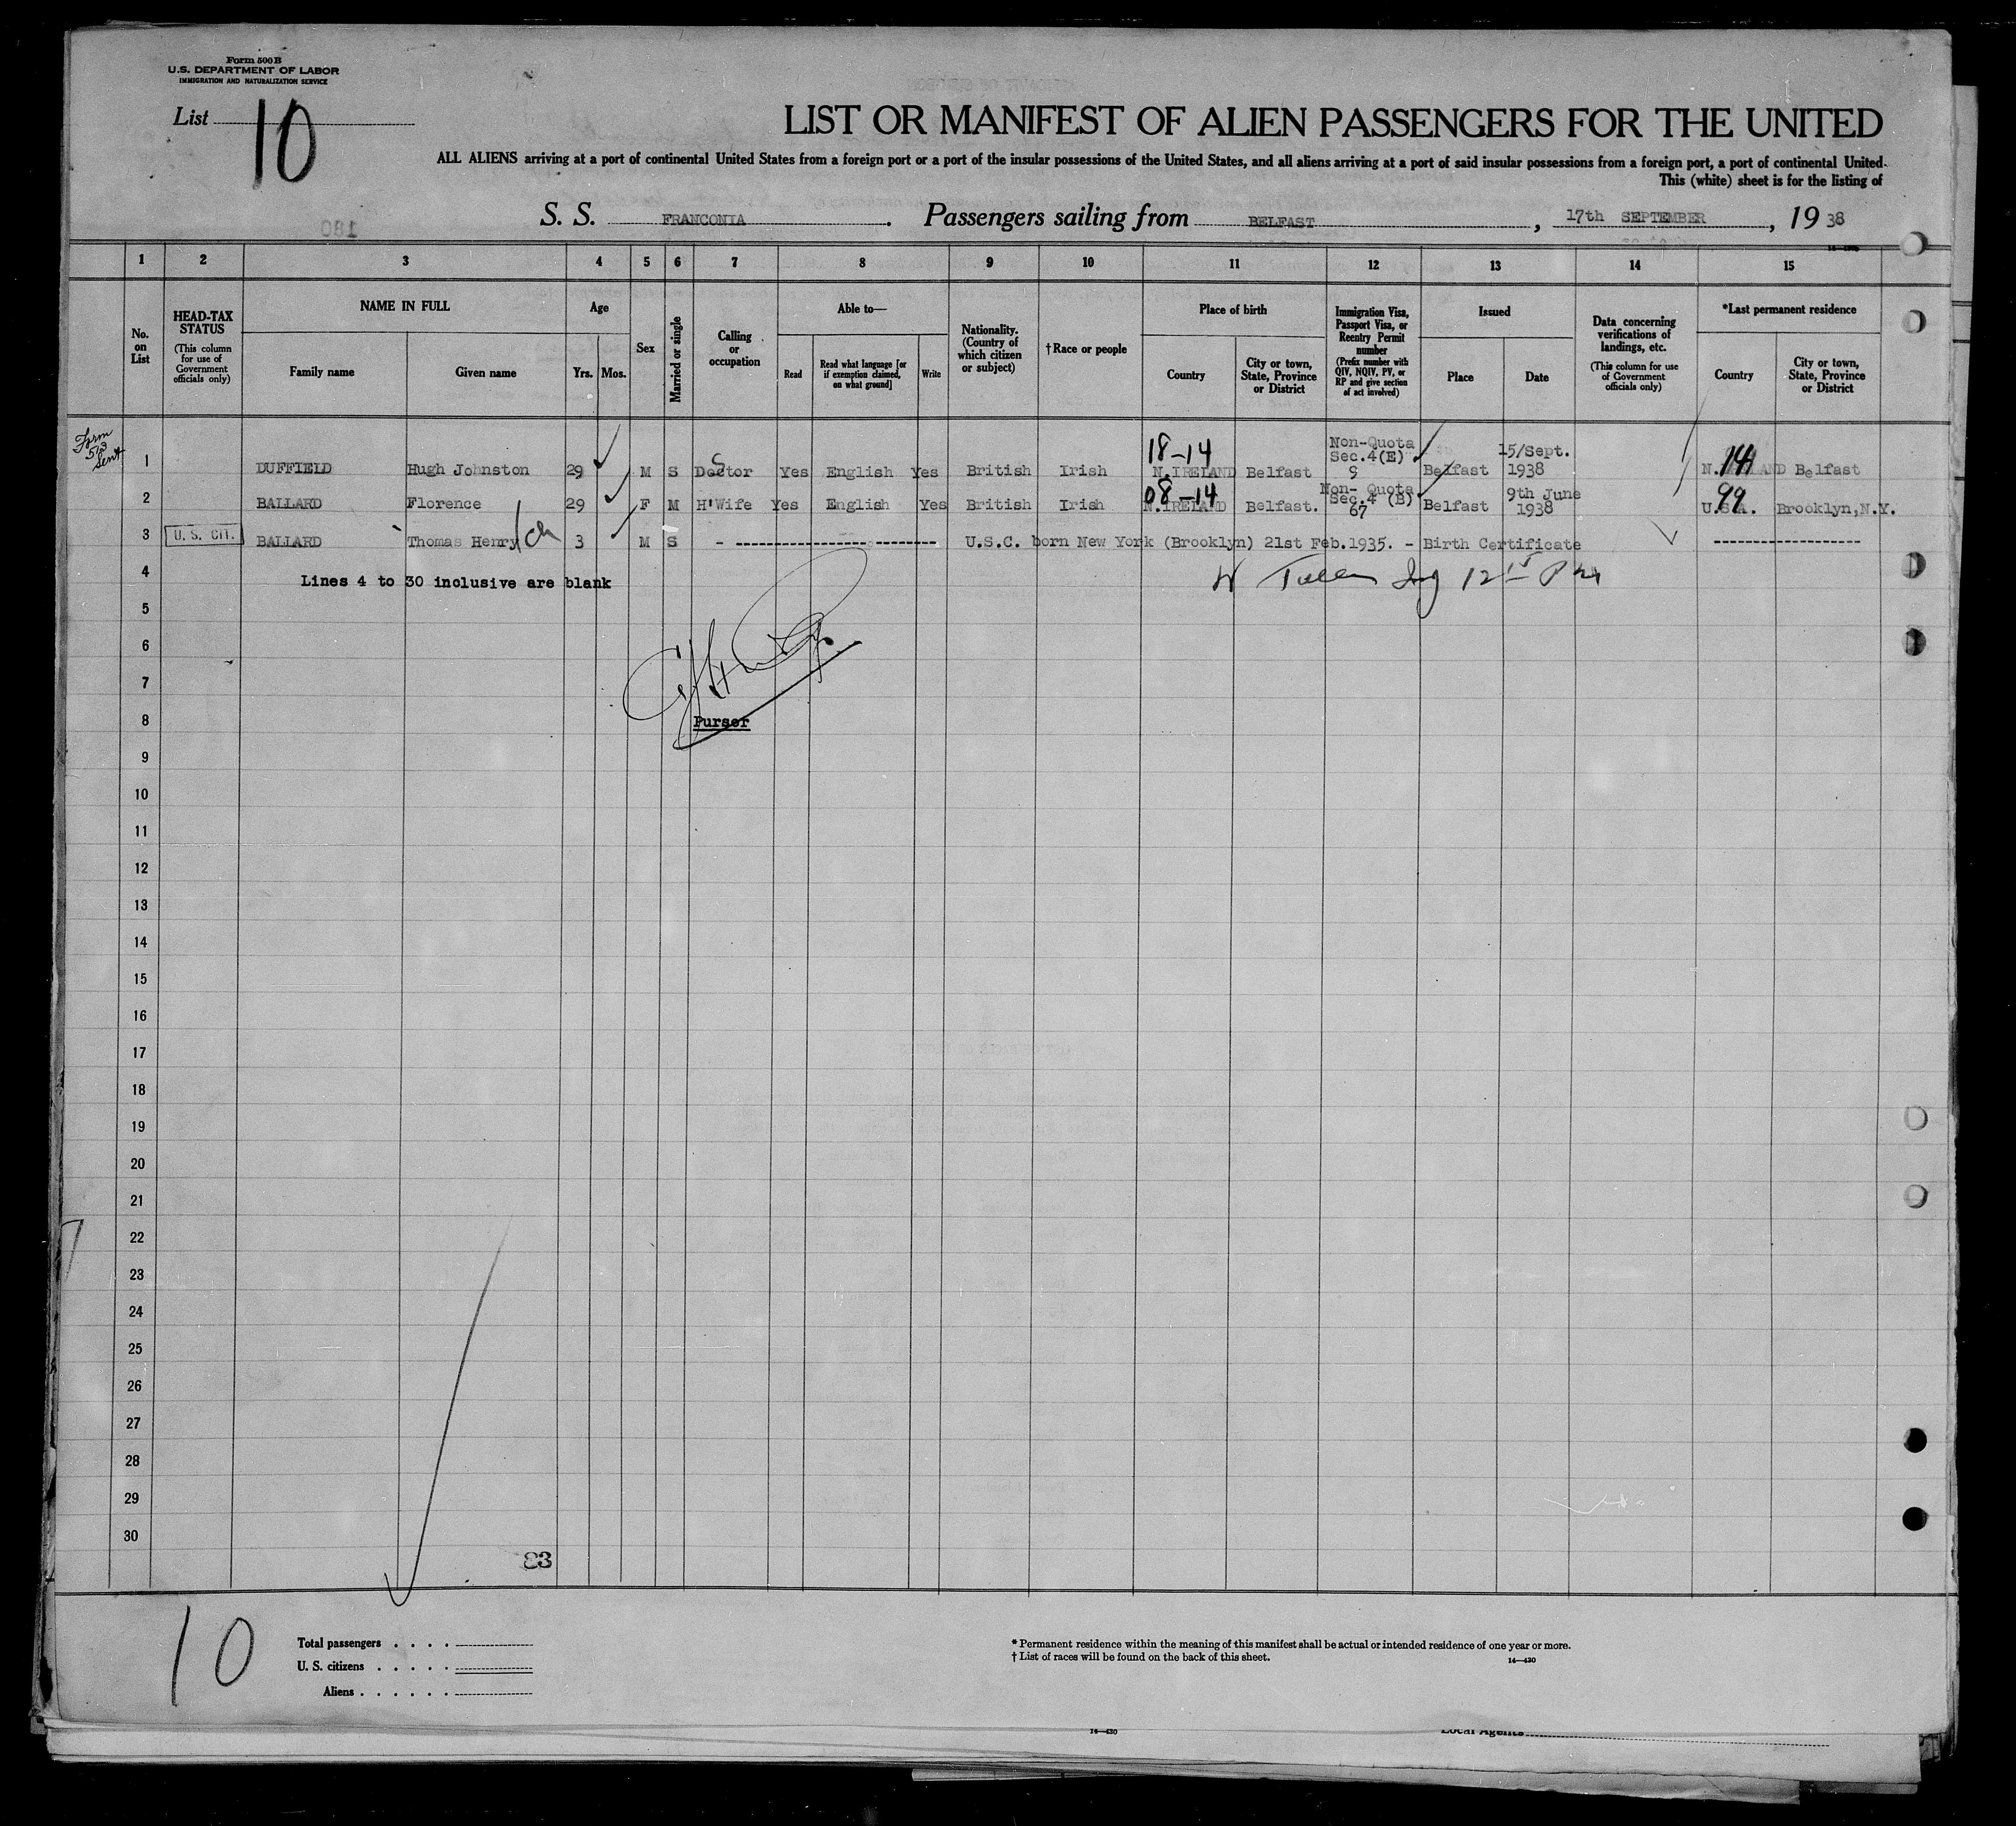 Form 500 B
U.S. DEPARTMENT OF LABOR
IMMIGRATION AND NATURALIZATION SERVICE
List 10
LIST OR MANIFEST OF ALIEN PASSENGERS FOR THE UNITED
ALL ALIENS arriving at a port of continental United States from a foreign port or a port of the insular possessions of the United States, and all aliens arriving at a port of said insular possessions from a foreign port, a port of continental United
This (white) sheet is for the listing of
S. S. FRANCONIA. Passengers sailing from BELFAST, 17th SEPTEMBER, 1938
180
1 2 3 4 5 6 7 8 9 10 11 12 13 14 15
No. on List
HEAD-TAX STATUS
(This column for use of Government officials only)
NAME IN FULL
Family name Given name
Age
Yrs. Mos.
Sex
Married or single
Calling or occupation
Able to—
Read
Read what language [or if exemption claimed, on what ground]
Write
Nationality. (Country of which citizen or subject)
† Race or people
Place of birth
Country
City or town, State, Province or District
Immigration Visa, Passport Visa, or Reentry Permit number
(Prefix number with QIV, NQIV, PV, or RP and give section of act involved)
Issued
Place Date
Data concerning verifications of landings, etc.
(This column for use of Government officials only)
*Last permanent residence
Country
City or town, State, Province or District
Form 513 Sent
18-14 Non-Quota 15/Sept.
Sec.4(E)
1 DUFFIELD Hugh Johnston 29 M S Doctor Yes English Yes British Irish N.IRELAND Belfast 9 Belfast 1938 14 N.IRELAND Belfast
08-14 Non- Quota 9th June 99
Sec.4 (B)
2 BALLARD Florence 29 F M H'Wife Yes English Yes British Irish N.IRELAND Belfast. 67 Belfast 1938 U.S.A. Brooklyn,N.Y.
3 U. S. CIT. BALLARD Thomas Henry ch 3 M S - U.S.C. born New York (Brooklyn) 21st Feb.1935. - Birth Certificate
4 Lines 4 to 30 inclusive are blank
5
6
7
8 Purser
9
10
11
12
13
14
15
16
17
18
19
20
21
22
23
24
25
26
27
28
29
30
83
10
Total passengers
U. S. citizens
Aliens
* Permanent residence within the meaning of this manifest shall be actual or intended residence of one year or more.
† List of races will be found on the back of this sheet.
14—430
14—430
Local Agents